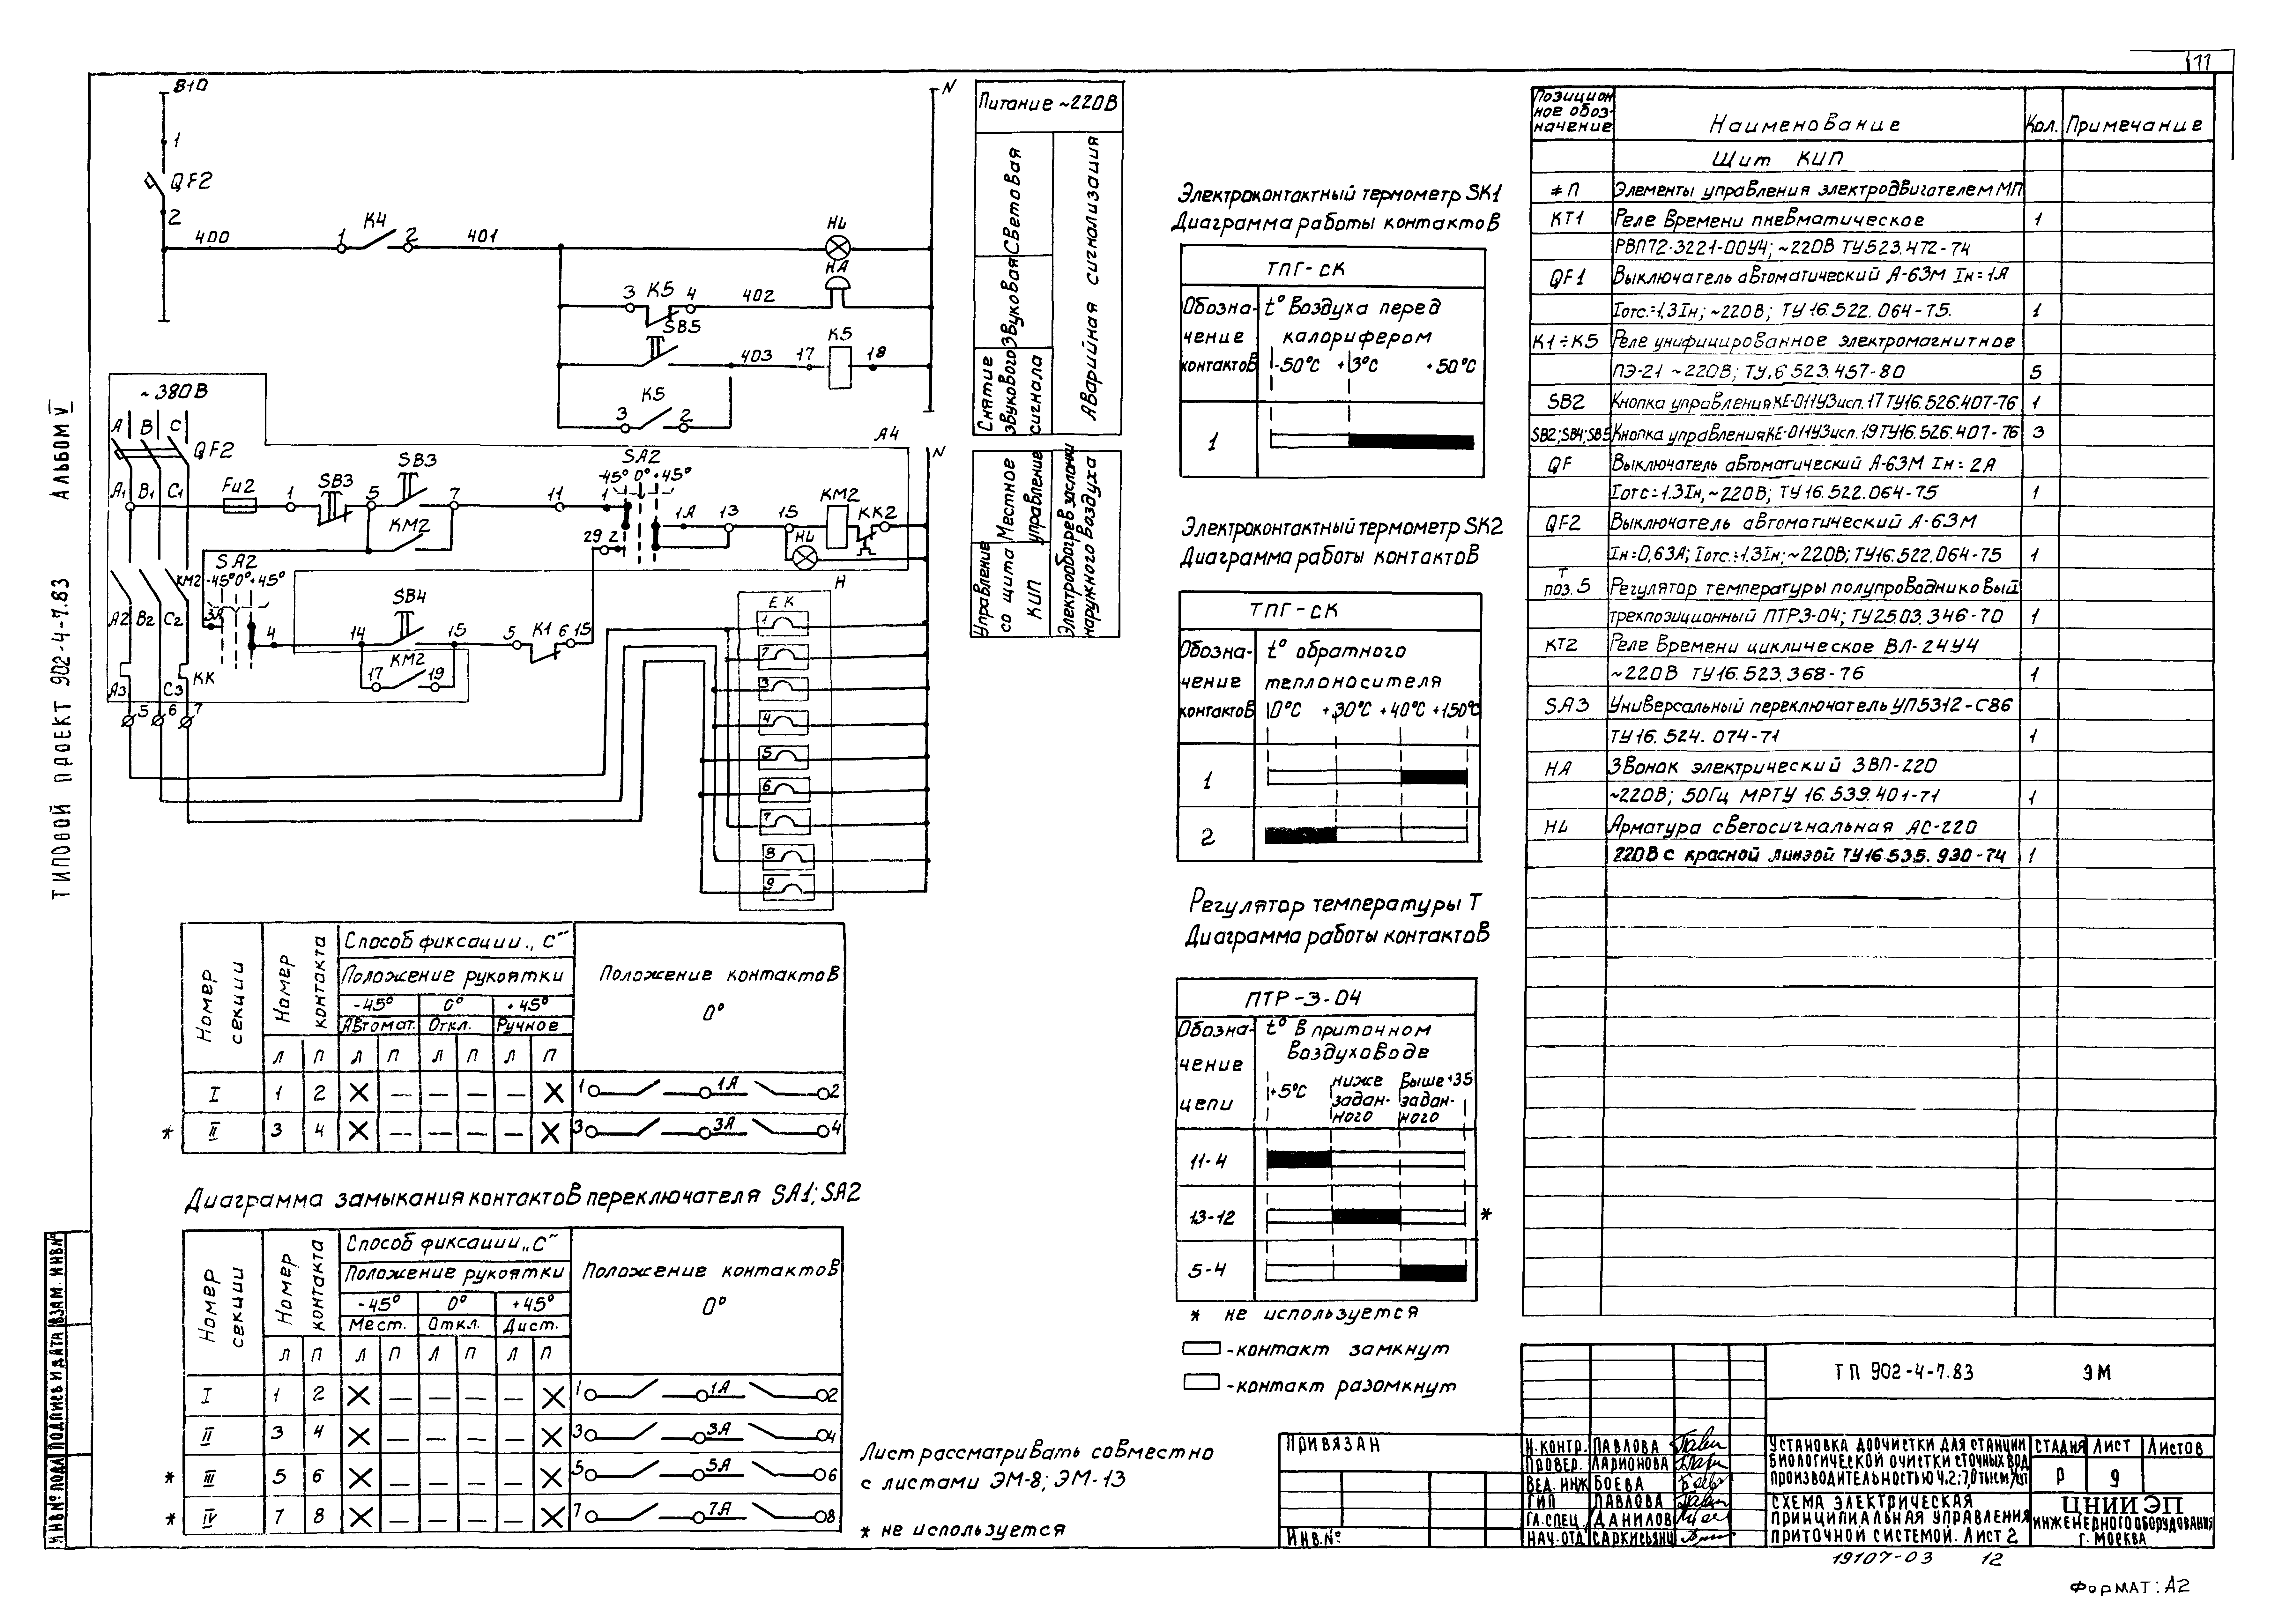 11
ТИПОВОЙ ПРОЕКТ 902-4-7.83 АЛЬБОМ V
810
N
1
QF2
2
400
1 К4 2
401
HL
НА
3 К5 4 402
SB5
403 17 К5 18
К5
3 2
Питание ~220В
Световая
Звуковая
Снятие звукового сигнала
Аварийная сигнализация
~380В
А В С
QF2
А4
N
А1 В1 С1
Fu2
1 SB3 5
SB3
7
КМ2
11
SA2
-45° 0° +45°
1
29 2
1А 13
15 КМ2 КК2
HL
Управление со щита КИП
Местное управление
Электрообогрев заслонки наружного воздуха
КМ2
SA2
-45° 0° +45°
3А
4
А2 В2 С2
14 SB4 15
5 К1 6 15
17 КМ2 19
КК
А3 С3
5 6 7
Н
ЕК
1
7
3
4
5
6
7
8
9
Номер секции
Номер контакта
Способ фиксации „С"
Положение рукоятки
Положение контактов
-45° 0° +45°
0°
Автомат. Откл. Ручное
Л П Л П Л П Л П
I 1 2 X — — — — X 1 1А 2
* II 3 4 X — — — — X 3 3А 4
Диаграмма замыкания контактов переключателя SA1; SA2
Номер секции
Номер контакта
Способ фиксации „С"
Положение рукоятки
Положение контактов
-45° 0° +45°
0°
Мест. Откл. Дист.
Л П Л П Л П Л П
I 1 2 X — — — — X 1 1А 2
II 3 4 X — — — — X 3 3А 4
* III 5 6 X — — — — X 5 5А 6
* IV 7 8 X — — — — X 7 7А 8
Лист рассматривать совместно
с листами ЭМ-8; ЭМ-13
* не используется
Электроконтактный термометр SK1
Диаграмма работы контактов
ТПГ-СК
Обозначение контактов
t° Воздуха перед
калорифером
-50°С +3°С +50°С
1
Электроконтактный термометр SK2
Диаграмма работы контактов
ТПГ-СК
Обозначение контактов
t° обратного
теплоносителя
0°С +30°С +40°С +150°С
1
2
Регулятор температуры Т
Диаграмма работы контактов
ПТР-3-04
Обозначение цепи
t° в приточном
воздуховоде
+5°С
ниже заданного
Выше заданного
+35
11-4
13-12 *
5-4
* не используется
-контакт замкнут
-контакт разомкнут
Позиционное обозначение Наименование Кол. Примечание
Щит КИП
≠П Элементы управления электродвигателем МП
КТ1 Реле времени пневматическое 1
РВП72-3221-00У4; ~220В ТУ523.472-74
QF1 Выключатель автоматический А-63М Iн=1А
Iотс.=1,3Iн; ~220В; ТУ16.522.064-75. 1
К1÷К5 Реле унифицированное электромагнитное
ПЭ-21 ~220В; ТУ.6523.457-80 5
SB2 Кнопка управления КЕ-011У3исп.17 ТУ16.526.407-76 1
SB2;SB4;SB5 Кнопка управления КЕ-011У3исп.19 ТУ16.526.407-76 3
QF Выключатель автоматический А-63М Iн=2А
Iотс=1.3Iн, ~220В; ТУ16.522.064-75 1
QF2 Выключатель автоматический А-63М
Iн=0,63А; Iотс.=1.3Iн; ~220В; ТУ16.522.064-75 1
Т поз.5 Регулятор температуры полупроводниковый
трехпозиционный ПТР3-04; ТУ25.03.346-70 1
КТ2 Реле времени циклическое ВЛ-24У4
~220В ТУ16.523.368-76 1
SA3 Универсальный переключатель УП5312-С86
ТУ16.524.074-71 1
НА Звонок электрический ЗВП-220
~220В; 50Гц МРТУ 16.539.401-71 1
HL Арматура светосигнальная АС-220
220В с красной линзой ТУ16.535.930-74 1
ТП 902-4-7.83 ЭМ
ПРИВЯЗАН
ИНВ.№
Н.КОНТР. ПАВЛОВА
ПРОВЕР. ЛАРИОНОВА
ВЕД.ИНЖ БОЕВА
ГИП ПАВЛОВА
ГЛ.СПЕЦ. ДАНИЛОВ
НАЧ.ОТД САРКИСЬЯНЦ
УСТАНОВКА ДООЧИСТКИ ДЛЯ СТАНЦИИ
БИОЛОГИЧЕСКОЙ ОЧИСТКИ СТОЧНЫХ ВОД
ПРОИЗВОДИТЕЛЬНОСТЬЮ 4,2;7,0 ТЫС М³/СУТ
СХЕМА ЭЛЕКТРИЧЕСКАЯ
ПРИНЦИПИАЛЬНАЯ УПРАВЛЕНИЯ
ПРИТОЧНОЙ СИСТЕМОЙ. ЛИСТ 2
СТАДИЯ ЛИСТ ЛИСТОВ
Р 9
ЦНИИЭП
ИНЖЕНЕРНОГО ОБОРУДОВАНИЯ
Г. МОСКВА
ИНВ№ ПОДЛ ПОДПИСЬ И ДАТА ВЗАМ. ИНВ№
19107-03 12
ФОРМАТ: А2